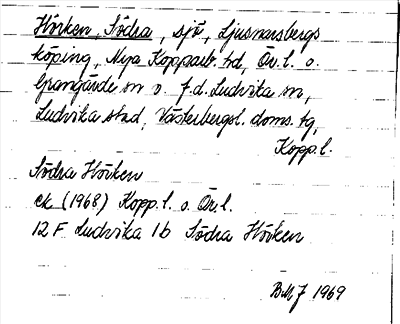 Hörken, Södra, sjö, Ljusnarsbergs
köping, Nya Kopparb. td, Ör. l. o.
Grangärde sn o. f.d. Ludvika sn,
Ludvika stad, Västerbergsl. doms. tg,
Kopp. l.
Södra Hörken
ek (1968) Kopp. l. o. Ör. l.
12 F Ludvika 1b Södra Hörken
BMJ 1969